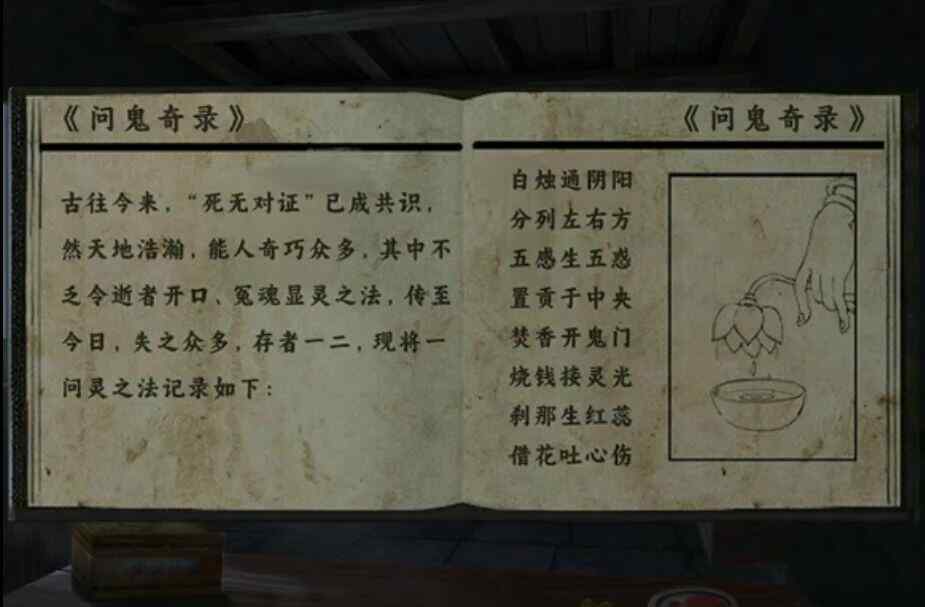 《问鬼奇录》
古往今来，“死无对证”已成共识，
然天地浩瀚，能人奇巧众多，其中不
乏令逝者开口、冤魂显灵之法，传至
今日，失之众多，存者一二，现将一
问灵之法记录如下：
《问鬼奇录》
白烛通阴阳
分列左右方
五感生五惑
置贡于中央
焚香开鬼门
烧钱接灵光
刹那生红蕊
借花吐心伤